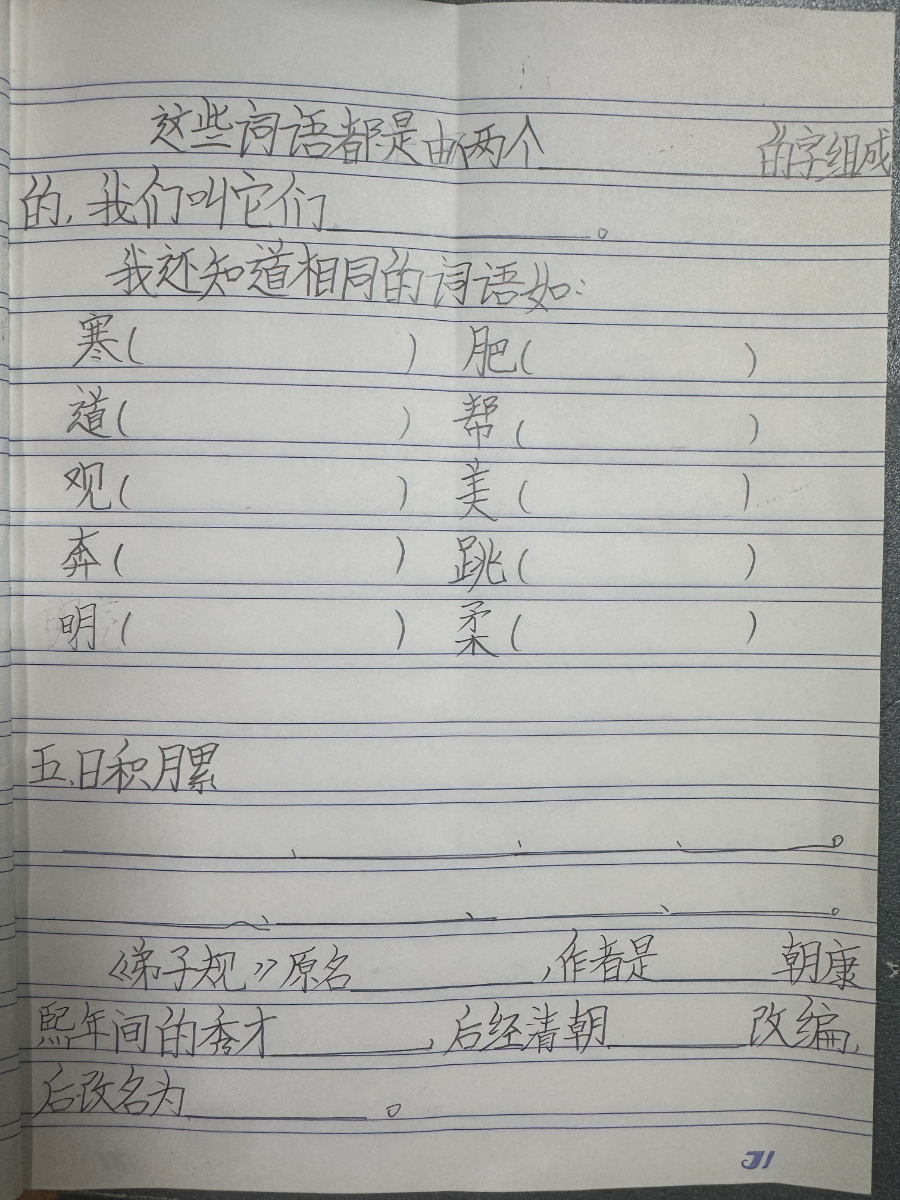 这些词语都是由两个________的字组成
的,我们叫它们________。
我还知道相同的词语如:
寒( ) 肥( )
道( ) 帮( )
观( ) 美( )
奔( ) 跳( )
明( ) 柔( )
五、日积月累
________、________、________、________。
________、________、________、________。
《弟子规》原名________,作者是________朝康
熙年间的秀才________,后经清朝________改编,
后改名为________。
31